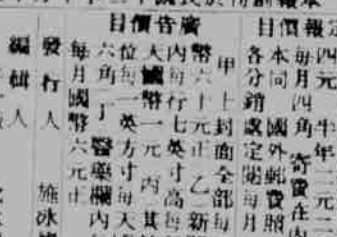 報價目
四元 半年二元二
每月四角 寄費在內
本同 國外郵費照
各分銷處定閱每月
廣告價目
甲 上封面全部每
幣六十元正 乙 新
內每行七英寸高每
天國幣一元 丙 其
位每一英方寸每天
六角 丁 醫藥欄內
每月國幣六元正
發行人 施冰
編輯人